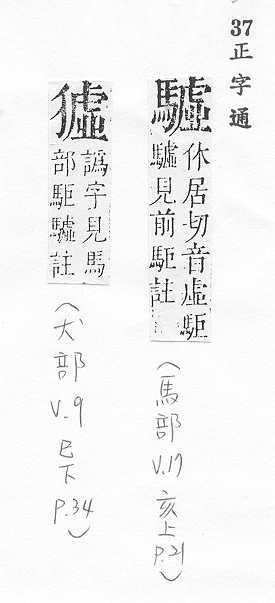 37正字通
驉
休居切音虛駏
驉見前駏註
(馬部 V.17 亥上 P.21)
㺔
譌字見馬
部駏驉註
(犬部 V.9 巳下 P.34)